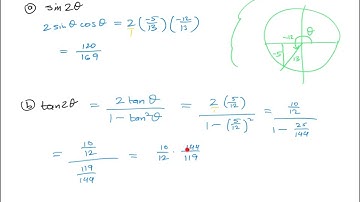 (a) sin 2θ
2 sinθ cosθ = 2 (-5/13) (-12/13)
= 120/169
θ
-12
-5
13
(b) tan 2θ = 2 tanθ / 1 - tan²θ = 2 (5/12) / 1 - (5/12)² = 10/12 / 1 - 25/144
= 10/12 / 119/144 = 10/12 · 144/119